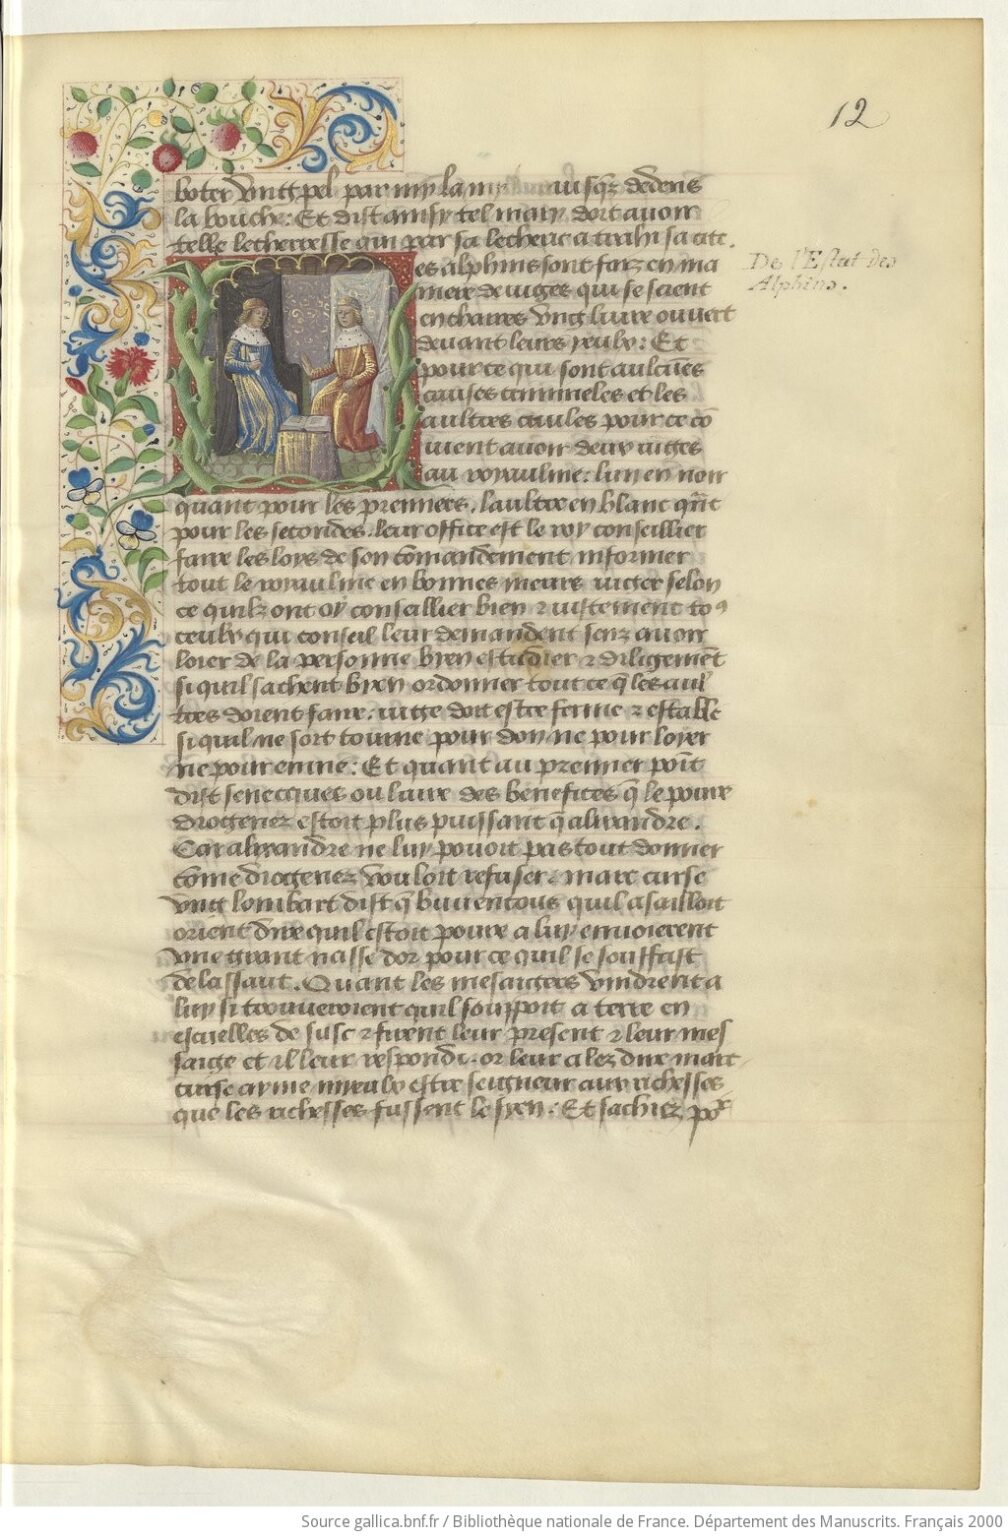 12
boter ung pel par my la jusqz dedens
la bouche: Et dist ainsy tel mary doit avoir
telle lecherresse qui par sa lecherie a trahi sa cite.
De l'Estat des
Alphins.
es alphins sont faiz en ma
niere de iuges qui se scient
en chaires ung livre ouvert
devant leurs yeulx: Et
pour ce qui sont aulcunes
causes criminelles et les
aultres civiles pour ce cō
vient avoir deux iuges
au royaulme: lun en noir
quant pour les premieres. laultre en blanc qnt
pour les secondes. leur office est le roy conseillier
faire les loys de son cōmandement informer
tout le royaulme en bonnes meurs iugier selon
ce quilz ont oy conseillier bien & iustement to9
ceulx qui conseil leur demandent sans avoir
loier de la personne bien estudier & diligemēt
si quil sachent bien ordonner tout ce q̄ les aul
tres doient faire. iuge doit estre ferme & estable
si quil ne soit tourne pour don ne pour loyer
ne pour envie: Et quant au premier poīt
dist senecques ou livre des benefices q̄ le povre
diogenez estoit plus puissant q̄ alixandre.
Car alixandre ne luy povoit pas tout donner
cōme diogenez vouloit refuser. marc curse
ung lombart dist q̄ buvencous quil asailloit
orient dire quil estoit povre a luy envoierent
une grant masse dor pour ce quil se souffrist
de lassaut. Quant les mesaigers vindrent a
luy si trouverent quil souppoit a terre en
escuelles de fust & firent leur present & leur mes
saige et il leur respondi. or leur alez dire marc
curse ayme mieulx estre seigneur aux richesses
que les richesses fussent le syen: Et sachiez po^r
Source gallica.bnf.fr / Bibliothèque nationale de France. Département des Manuscrits. Français 2000